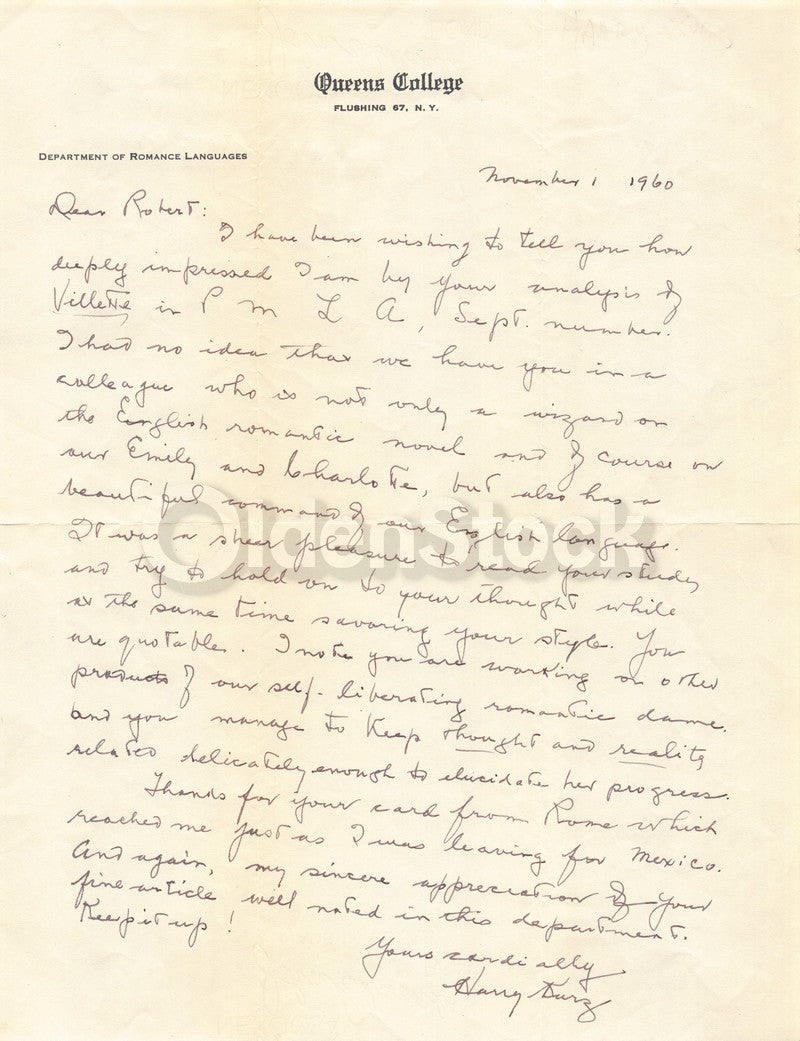 Queens College
FLUSHING 67, N. Y.
DEPARTMENT OF ROMANCE LANGUAGES
November 1 1960
Dear Robert:
I have been wishing to tell you how
deeply impressed I am by your analysis of
Villette in P M L A, Sept. number.
I had no idea that we have you in a
colleague who is not only a wizard on
the English romantic novel and of course on
our Emily and Charlotte, but also has a
beautiful command of our English language.
It was a sheer pleasure to read your study
and try to hold on to your thought while
at the same time savoring your style. You
are quotable. I note you are working on other
products of our self-liberating romantic dame.
and you manage to keep thought and reality
related delicately enough to elucidate her progress.
Thanks for your card from Rome which
reached me just as I was leaving for Mexico.
And again, my sincere appreciation of your
fine article well noted in this department.
Keep it up!
Yours cordially
Harry Kurz
OldenStock